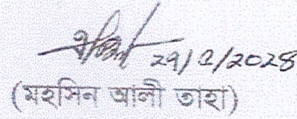 ২৭/৫/২০২৪
(মহসিন আলী তাহা)